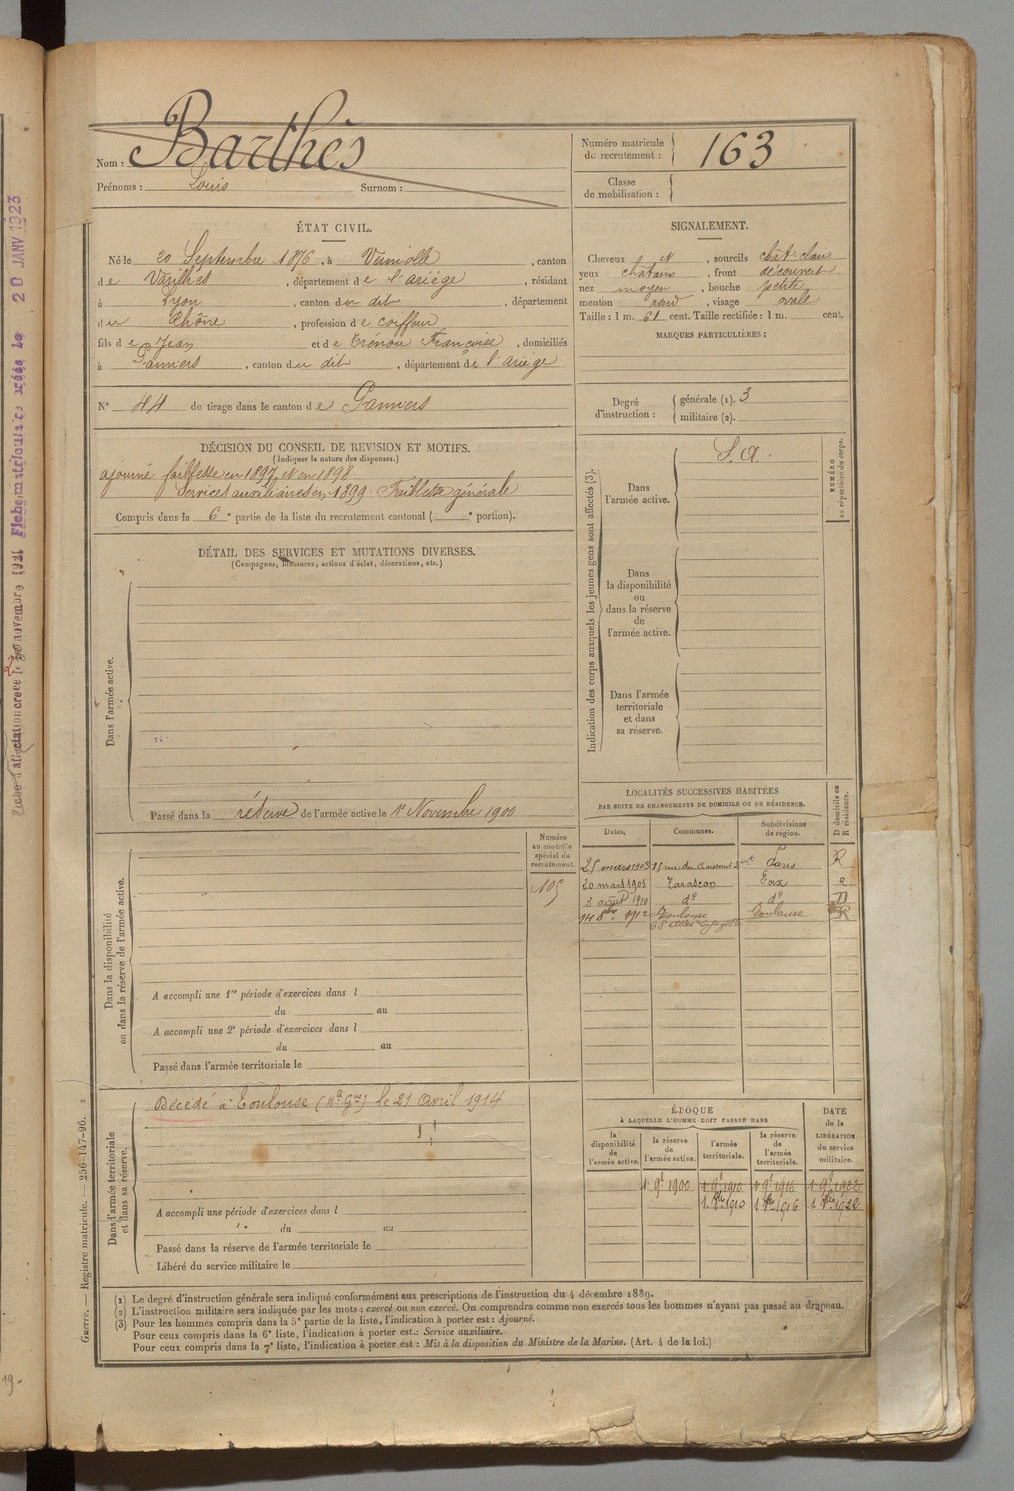 Nom : Barthès
Prénoms : Louis Surnom :
Numéro matricule de recrutement : 163
Classe de mobilisation :
ÉTAT CIVIL.
Né le 20 Septembre 1876, à Verniolle, canton
de Varilhes, département de l'ariège, résidant
à Lyon, canton du dit, département
du Rhône, profession de coiffeur
fils de Jean et de Trénou Françoise, domiciliés
à Pamiers, canton du dit, département de l'ariège
N° 44 de tirage dans le canton de Pamiers
SIGNALEMENT.
Cheveux N, sourcils chât. clair
yeux chatains, front découvert
nez moyen, bouche petite
menton rond, visage ovale
Taille : 1 m. 61 cent. Taille rectifiée : 1 m. cent.
MARQUES PARTICULIÈRES :
Degré d'instruction : générale (1). 3
militaire (2).
DÉCISION DU CONSEIL DE REVISION ET MOTIFS.
(Indiquer la nature des dispenses.)
ajourné faiblesse en 1897 et en 1898
Services auxiliaires en 1899. Faiblesse générale
Compris dans la 6e partie de la liste du recrutement cantonal ( e portion).
DÉTAIL DES SERVICES ET MUTATIONS DIVERSES.
(Campagnes, blessures, actions d'éclat, décorations, etc.)
Dans l'armée active.
Passé dans la réserve de l'armée active le 1er Novembre 1900
Indication des corps auxquels les jeunes gens sont affectés (3).
Dans l'armée active. S. A.
NUMÉRO au répertoire du corps.
Dans la disponibilité ou dans la réserve de l'armée active.
Dans l'armée territoriale et dans sa réserve.
Numéro au contrôle spécial du recrutement.
105
Dans la disponibilité ou dans la réserve de l'armée active.
A accompli une 1re période d'exercices dans l
du au
A accompli une 2e période d'exercices dans l
du au
Passé dans l'armée territoriale le
LOCALITÉS SUCCESSIVES HABITÉES
PAR SUITE DE CHANGEMENTS DE DOMICILE OU DE RÉSIDENCE.
Dates. Communes. Subdivisions de région. D domicile ou R résidence.
25 mars 1903 15 rue du Croissant 2 Paris R
20 mars 1905 Tarascon Foix R
3 août 1910 do do D
14 8bre 1912 Toulouse Toulouse R
68 Lafayette
Dans l'armée territoriale et dans sa réserve.
Décédé à Toulouse (Hte Gne) le 21 Avril 1914
A accompli une période d'exercices dans l
du au
Passé dans la réserve de l'armée territoriale le
Libéré du service militaire le
ÉPOQUE
À LAQUELLE L'HOMME DOIT PASSER DANS
DATE de la LIBÉRATION du service militaire.
la disponibilité de l'armée active. la réserve de l'armée active. l'armée territoriale. la réserve de l'armée territoriale.
1. 9e 1900 1. 9e 1910 1. 9e 1916 1. 9e 1922
1. 8bre 1910 1 8bre 1916 1 8bre 1922
(1) Le degré d'instruction générale sera indiqué conformément aux prescriptions de l'instruction du 4 décembre 1889.
(2) L'instruction militaire sera indiquée par les mots : exercé ou non exercé. On comprendra comme non exercés tous les hommes n'ayant pas passé au drapeau.
(3) Pour les hommes compris dans la 5e partie de la liste, l'indication à porter est : Ajourné.
Pour ceux compris dans la 6e liste, l'indication à porter est : Service auxiliaire.
Pour ceux compris dans la 7e liste, l'indication à porter est : Mis à la disposition du Ministre de la Marine. (Art. 4 de la loi.)
Guerre. — Registre matricule. — 256-147-96. 2
Fiche matriculaire créée le 20 JANV 1923
Fiche d'affectation créée le novembre 1921
19-